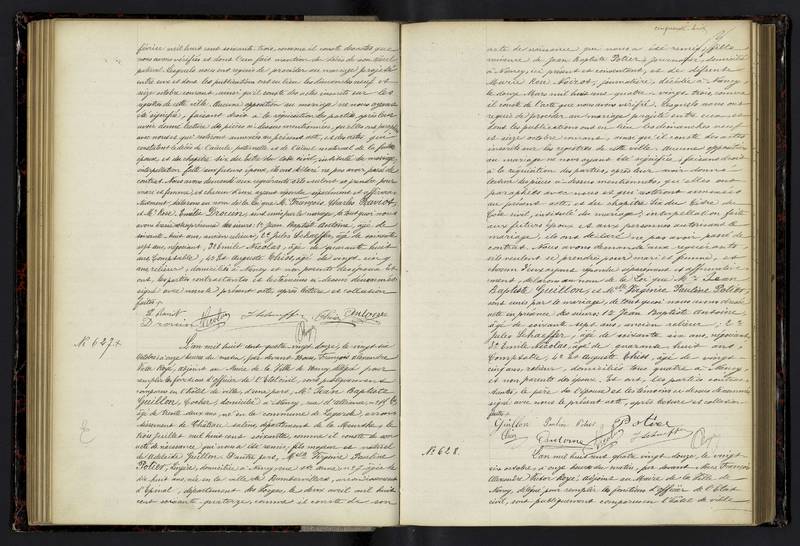 février mil huit cent soixante trois, comme il conste des actes que
nous avons vérifiés et dont l'un fait mention du décès de son aïeul
paternel. Lesquels nous ont requis de procéder au mariage projeté
entre eux et dont les publications ont eu lieu les dimanches neuf et
seize octobre courant, ainsi qu'il conste des actes inscrits sur les
registres de cette ville. Aucune opposition au mariage ne nous ayant
été signifiée, faisant droit à la réquisition des parties, après leur
avoir donné lecture des pièces ci-dessus mentionnées,
époux, et du chapitre six du titre du Code civil, intitulé du mariage,
interpellation faite aux futurs époux, ils ont déclaré ne pas avoir fait de
contrat. Nous avons demandé aux requérants s'ils veulent se prendre pour
mari et femme, et chacun d'eux ayant répondu séparément et affirma-
tivement, déclarons au nom de la loi que Mr François Charles
et Mlle Rose Emilie Drouin, sont unis par le mariage, de tout quoi nous
avons dressé acte en présence des sieurs: 1° Jean Baptiste Antoine, âgé de
soixante sept ans, ancien relieur; 2° Jules Schaeffer, âgé de soixante
six ans, négociant; 3° Emile Nicolas, âgé de quarante huit
ans, Comptable; 4° Et Auguste Thiss, âgé de vingt cinq
ans, relieur, domiciliés à Nancy et non parents des époux. Et
ont, les parties contractantes et les témoins ci-dessus dénommés
signé avec nous le présent acte, après lecture et collation
faites.
Drouin Nicolas J Schaeffer Thiss Antoine
N° 627
L'an mil huit cent quatre vingt douze, le vingt six
Octobre à onze heures du matin, par devant Nous, François Alexandre
Victor Roye, adjoint au Maire de la Ville de Nancy, délégué pour
remplir les fonctions d'officier de l'Etat civil, sont publiquement
comparus en l'hôtel de ville, d'une part, Mr Jean Baptiste
Guillon, Cocher, domicilié à Nancy, rue
âgé de trente deux ans, né en la commune de Lezard, arron-
dissement de Château-salins, département de la Meurthe, le
trois juillet mil huit cent soixante, comme il conste de son
acte de naissance qui nous a été remis, fils majeur et naturel
de Adélaïde Guillon. D'autre part, Mlle Virginie Pauline
Potier, lingère, domiciliée à Nancy, rue Ste Anne n° 7, âgée de
dix huit ans, née en la ville de Rambervillers, arrondissement
d'Epinal, département des Vosges, le deux avril mil huit
cent soixante quatorze, comme il conste de son
cinquante huit
acte de naissance qui nous a été remis, fille
mineure de Jean Baptiste Potier, journalier, domicilié
à Nancy, ici présent et consentant, et de défunte
Marie Rose Noirot, journalière, décédée à Nancy,
le douze Mars mil huit cent quatre vingt trois, comme
il conste de l'acte que nous avons vérifié. Lesquels nous ont
requis de procéder au mariage projeté entre eux et
dont les publications ont eu lieu les dimanches neuf
et seize octobre courant, ainsi que il conste des actes
inscrits sur les registres de cette ville. Aucune opposition
au mariage ne nous ayant été signifiée, faisant droit
à la réquisition des parties, après leur avoir donné
lecture des pièces ci-dessus mentionnées, qu'elles ont
paraphées avec nous et qui resteront annexées
au présent acte, et du chapitre six du Titre du
Code civil, intitulé du mariage, interpellation faite
aux futurs époux et aux personnes autorisant le
mariage, ils ont déclaré ne pas avoir passé de
contrat. Nous avons demandé aux requérants
s'ils veulent se prendre pour mari et femme, et
chacun d'eux ayant répondu séparément et affirmative-
ment, déclarons au nom de la Loi que Mr Jean
Baptiste Guillon et Mlle Virginie Pauline Potier,
sont unis par le mariage, de tout quoi nous avons dressé
acte en présence des sieurs: 1° Jean Baptiste Antoine,
âgé de soixante sept ans, ancien relieur; 2°
Jules Schaeffer, âgé de soixante six ans, négociant;
3° Emile Nicolas, âgé de quarante huit ans,
Comptable; 4° Et Auguste Thiss, âgé de vingt
cinq ans, relieur, domiciliés tous quatre à Nancy,
et non parents des époux. Et ont, les parties contrac-
tantes, le père de l'épouse et les témoins ci-dessus dénommés
signé avec nous le présent acte, après lecture et collation
faites.
Guillon Potier
Thiss Antoine Nicolas J Schaeffer Roye
N° 628.
L'an mil huit cent quatre vingt douze, le vingt
six octobre, à onze heures du matin, par devant Nous François
Alexandre Victor Roye, adjoint au Maire de la Ville de
Nancy, délégué pour remplir les fonctions d'officier de l'Etat
civil, sont publiquement comparus en l'hôtel de ville